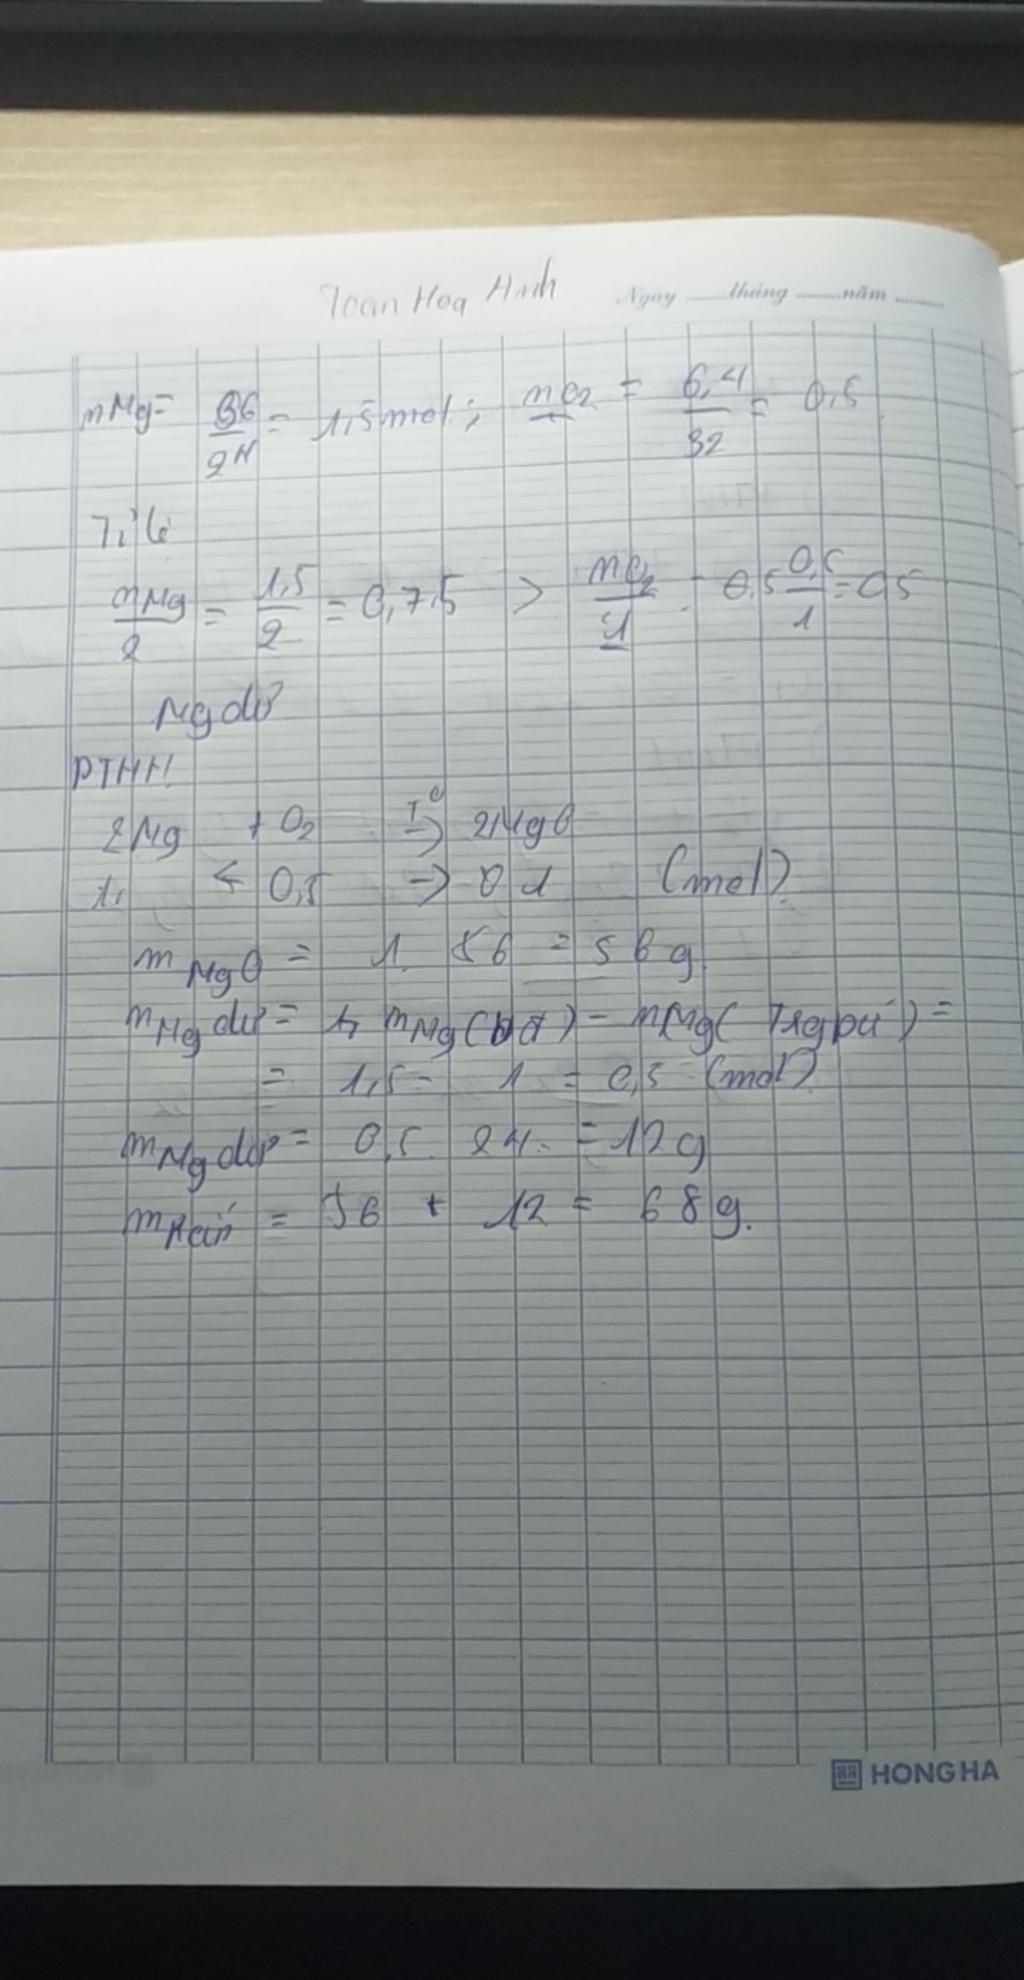 Toan Hoa Anh Ngày ........tháng ........năm ........
nMg = 36/24 = 1,5 mol ; nO2 = 6,4/32 = 0,5
Tỉ lệ
nMg/2 = 1,5/2 = 0,75 > nO2/1 = 0,5 0,5/1 = 0,5
Mg dư
PTHH
2Mg + O2 T° → 2MgO
1, ← 0,5 → 0 1 (mol)
m MgO = 1 56 = 56 g
m Mg dư = m Mg (bđ) - n Mg ( ) =
= 1,5 - 1 = 0,5 (mol)
m Mg dư = 0,5. 24. = 12 g
m Rắn = 56 + 12 = 68 g.
HH HONG HA